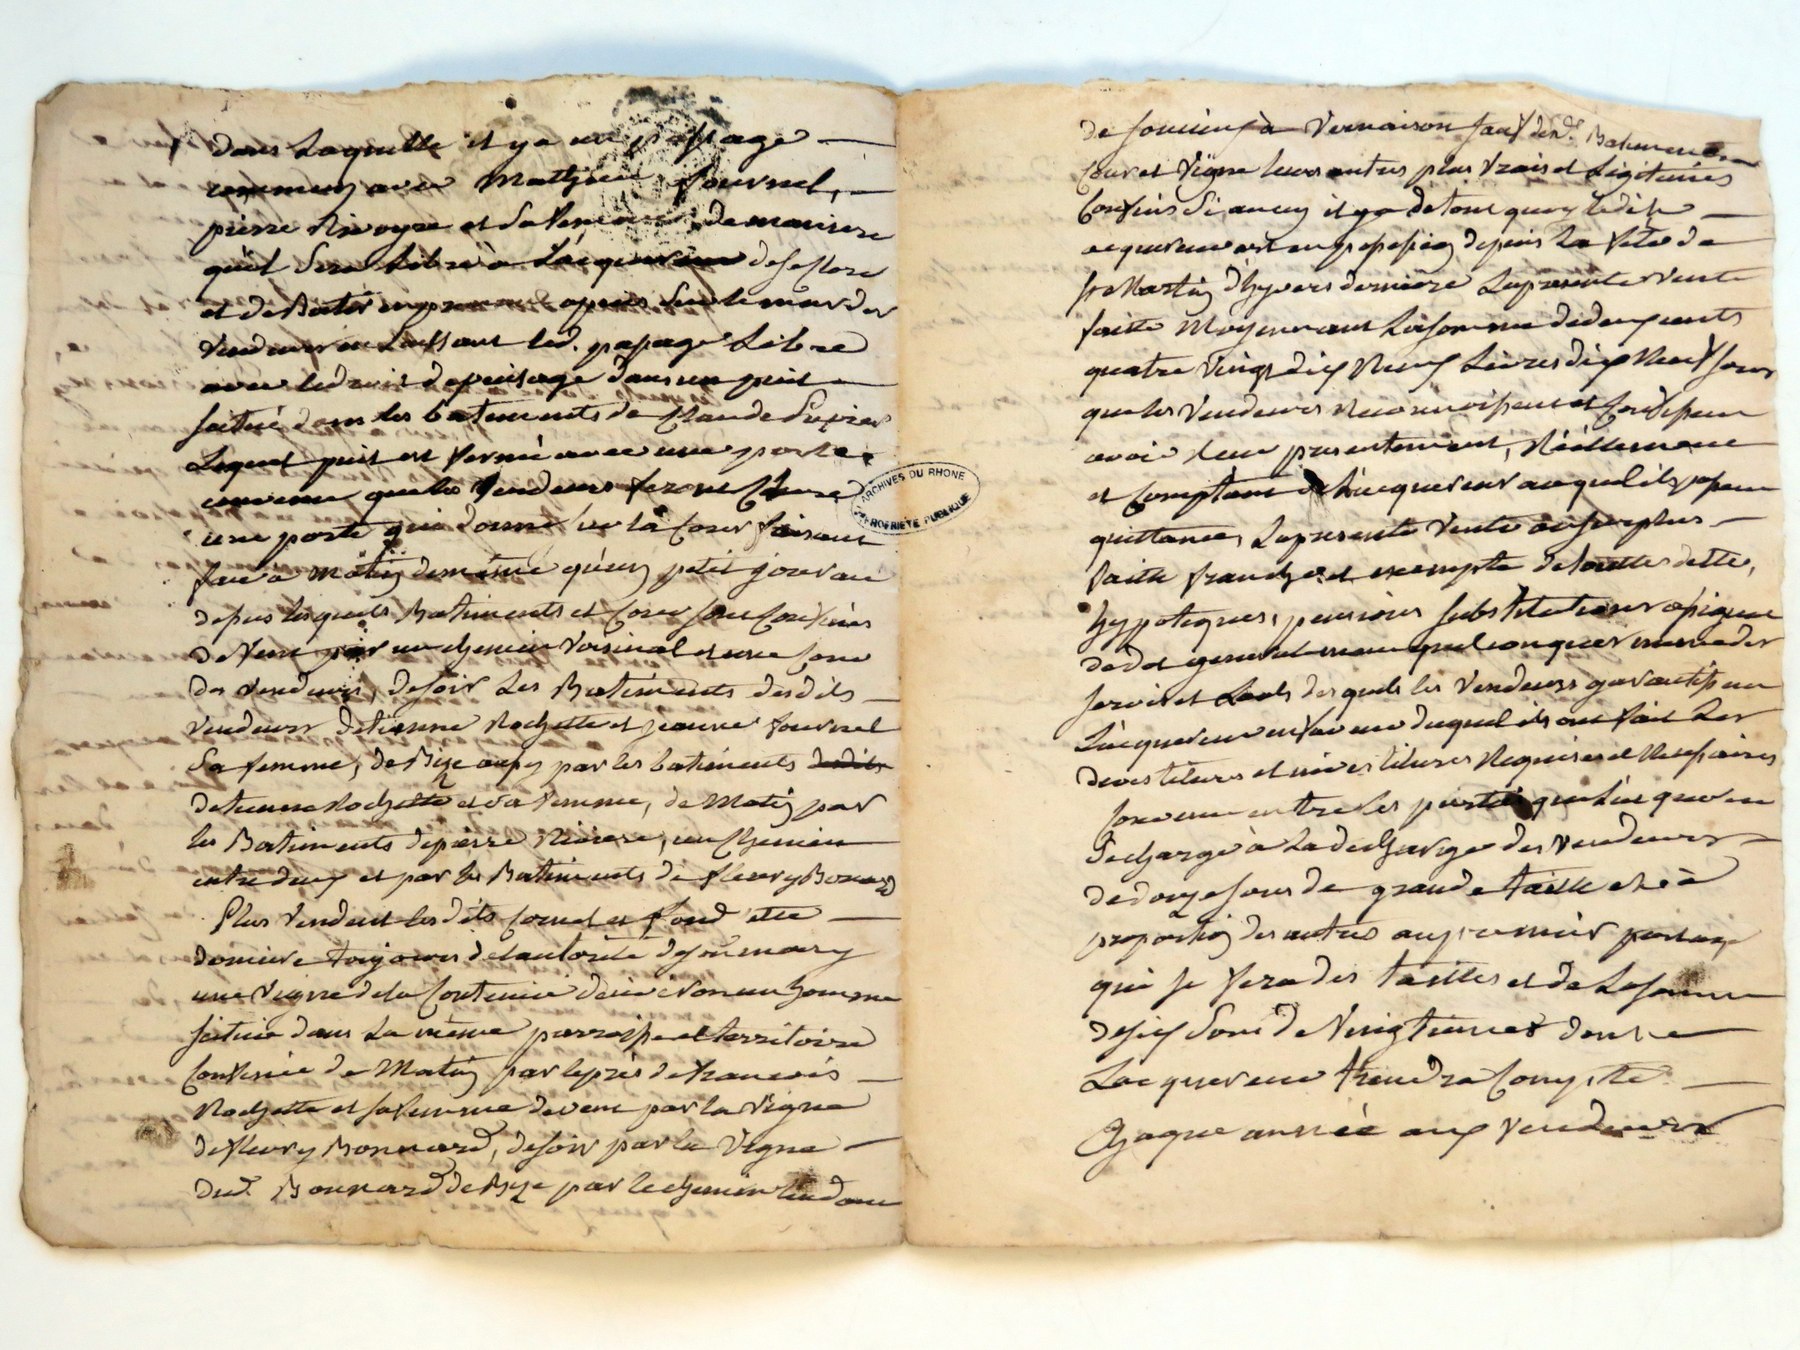 dans Laquelle il y a un passage
commun avec Mathieu fournel,
pierre Rivoyre et Sa femme de maniere
qu'il Sera Libre à Lacquereur de
et de Batir en apuis Sur le mur des
Vendeurs en Laissant led. passage Libre
avec le droit de puisage dans un puit
scitué dans les batiments de Claude
Lequel puit est fermé avec une porte
convenu que les Vendeurs feront Clore
une porte qui donne sur la Cour faisant
face a matin de même qu'un petit
des quels Batiments et Cour sont Confinés
de Vent par un chemin Voisinal et une Cour
des Vendeurs, de soir Les Batiments desdits
Vendeurs d'etienne Rochette et jeanne fournel
Sa femme, de Bize aussy par les batiments
d'etienne Rochette et sa femme, de Matin par
les Batiments de pierre Riviere, un Chemin
entre deux et par les Batiments de fleury Bonnard
Plus Vendent les dits Cornet et fond cette
derniere toujours de l'autorité de son mary
une Vigne de la Contenue d'environ un homme
scituée dans La même parroisse et territoire
Confinée de Matin par le prés de francois
Rochette et sa femme de vent par la Vigne
de fleury Bonnard, de soir par la Vigne
dud. Bonnard de Bize par le chemin tendant
de à Vernaison sauf desd. Batiments
Cour et Vigne leurs autres plus vrais et Légitimes
Confins Si aucun il y a de tout quoy ledit
acquereur est en possession depuis La fete de
St Martin d'hyvers derniere La presente Vente
faitte Moyennant La somme de deux cents
quatre Vingt dix Neuf Livres dix Neuf sous
que les Vendeurs Reconnoissent et Confessent
avoir Reçu presentement, Réellement
et Comptant de Lacquereur au quel ils passent
quittance, La presente Vente au surplus
faitte franche et exempte de toutte dette,
hypoteques, pensions substitutions
de dot generalement quelconques
servis et Laods des quels les Vendeurs garantissent
Lacquereur en faveur duquel ils ont fait Les
devestitures et investitures Requises et Nessaires
Convenu entre les parties que Lacquereur
Se charge à La decharge des Vendeurs
de douze sous de grande taille et à
proportion des autres au premier
qui se fera des tailles et de La somme
de six Sous de Vingtiemes dont
Lacquereur tiendra Compte
Chaque année aux Vendeurs
ARCHIVES DU RHONE
PROPRIÉTÉ PUBLIQUE